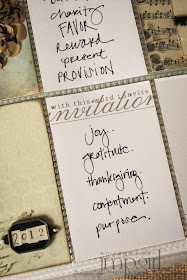 charity
FAVOR
reward
present
PROVISION
with this word i invite
invitation
joy.
gratitude.
thanksgiving.
contentment.
purpose.
2012